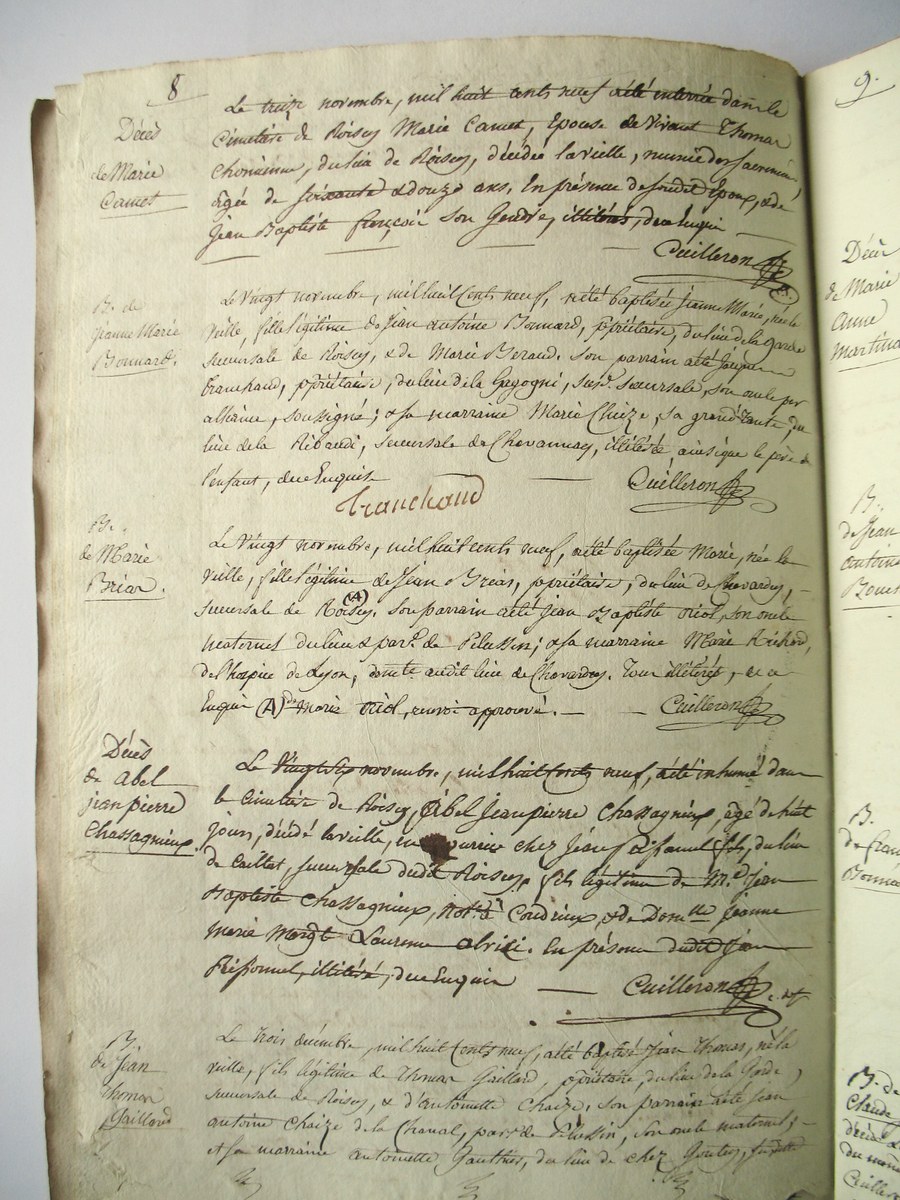 8
Décès
de Marie
Camet
Le treize novembre, mil huit cents neuf a été interrée dans le
Cimetière de Roisey Marie Camet, Epouse de vivant Thomas
du lieu de Roisey, décédée la veille, munie des sacremens,
âgée de soixante & douze ans. En présence de sudit Epoux, & de
Jean Baptiste françois son Gendre, illitérés, de ce Enquis
Cuilleron
B. de
Jeanne Marie
Bonnard.
Le Vingt novembre, mil huit Cents neuf, a été baptisée Jeanne Marie, née la
veille, fille légitime de Jean Antoine Bonnard, ppriétaire, du lieu de la Garde
succursale de Roisey, & de Marie Beraud. Son parrain a été Jacques
Tranchand, ppriétaire, du lieu de la succursale, son oncle par
alliance, soussigné; & sa marraine Marie Chaize, sa grand'tante, du
lieu de la Ribaudi, succursale de Chavannay, illitérée, ainsi que le père de
l'enfant, de ce Enquis
Cuilleron
Tranchand
B.
de Marie
Brias.
Le Vingt novembre, mil huit cents neuf, a été baptisée Marie, née la
veille, fille légitime de Jean Brias, ppriétaire, du lieu de Chavardey,
succursale de Roisey. (A) Son parrain a été Jean Baptiste oriol, son oncle
maternel du lieu & par.se de Pelussin; & sa marraine Marie Richard,
de l'hospice de Lyon, audit lieu de Chavardey. Tous illitérés, de ce
Enquis (A) & de Marie oriol, renvoi approuvé.
Cuilleron
Décès
de Abel
jean pierre
Chassagnieux
Le Vingt Six novembre, mil huit Cents neuf, a été inhumé dans
le Cimetière de Roisey, Abel Jean pierre Chassagnieux, âgé de huit
jours, décédé la veille, en chez Jean fils, du lieu
de Caillat, succursale dudit Roisey, fils légitime de M.r Jean
Baptiste Chassagnieux, not.re à Condrieux, & de Dom.lle Jeanne
Marie Margt. Laurence En présence dudit Jean
illitéré, de ce Enquis
Cuilleron
B.
de Jean
Thomas
Gaillard
Le Trois décembre, mil huit Cents neuf, a été baptisé Jean Thomas, né la
veille, fils légitime de Thomas Gaillard, ppriétaire, du lieu de la Garde,
succursale de Roisey, & d'antoinette Chaize. Son parrain a été Jean
antoine Chaize de la Chanal, par.se de Pelussin, son oncle maternel;
& sa marraine antoinette Gauthier, du lieu de chez
9.
Décès
de Marie
Anne
Martin
B.
de Jean
antoine
B.
de
B. de
Claude